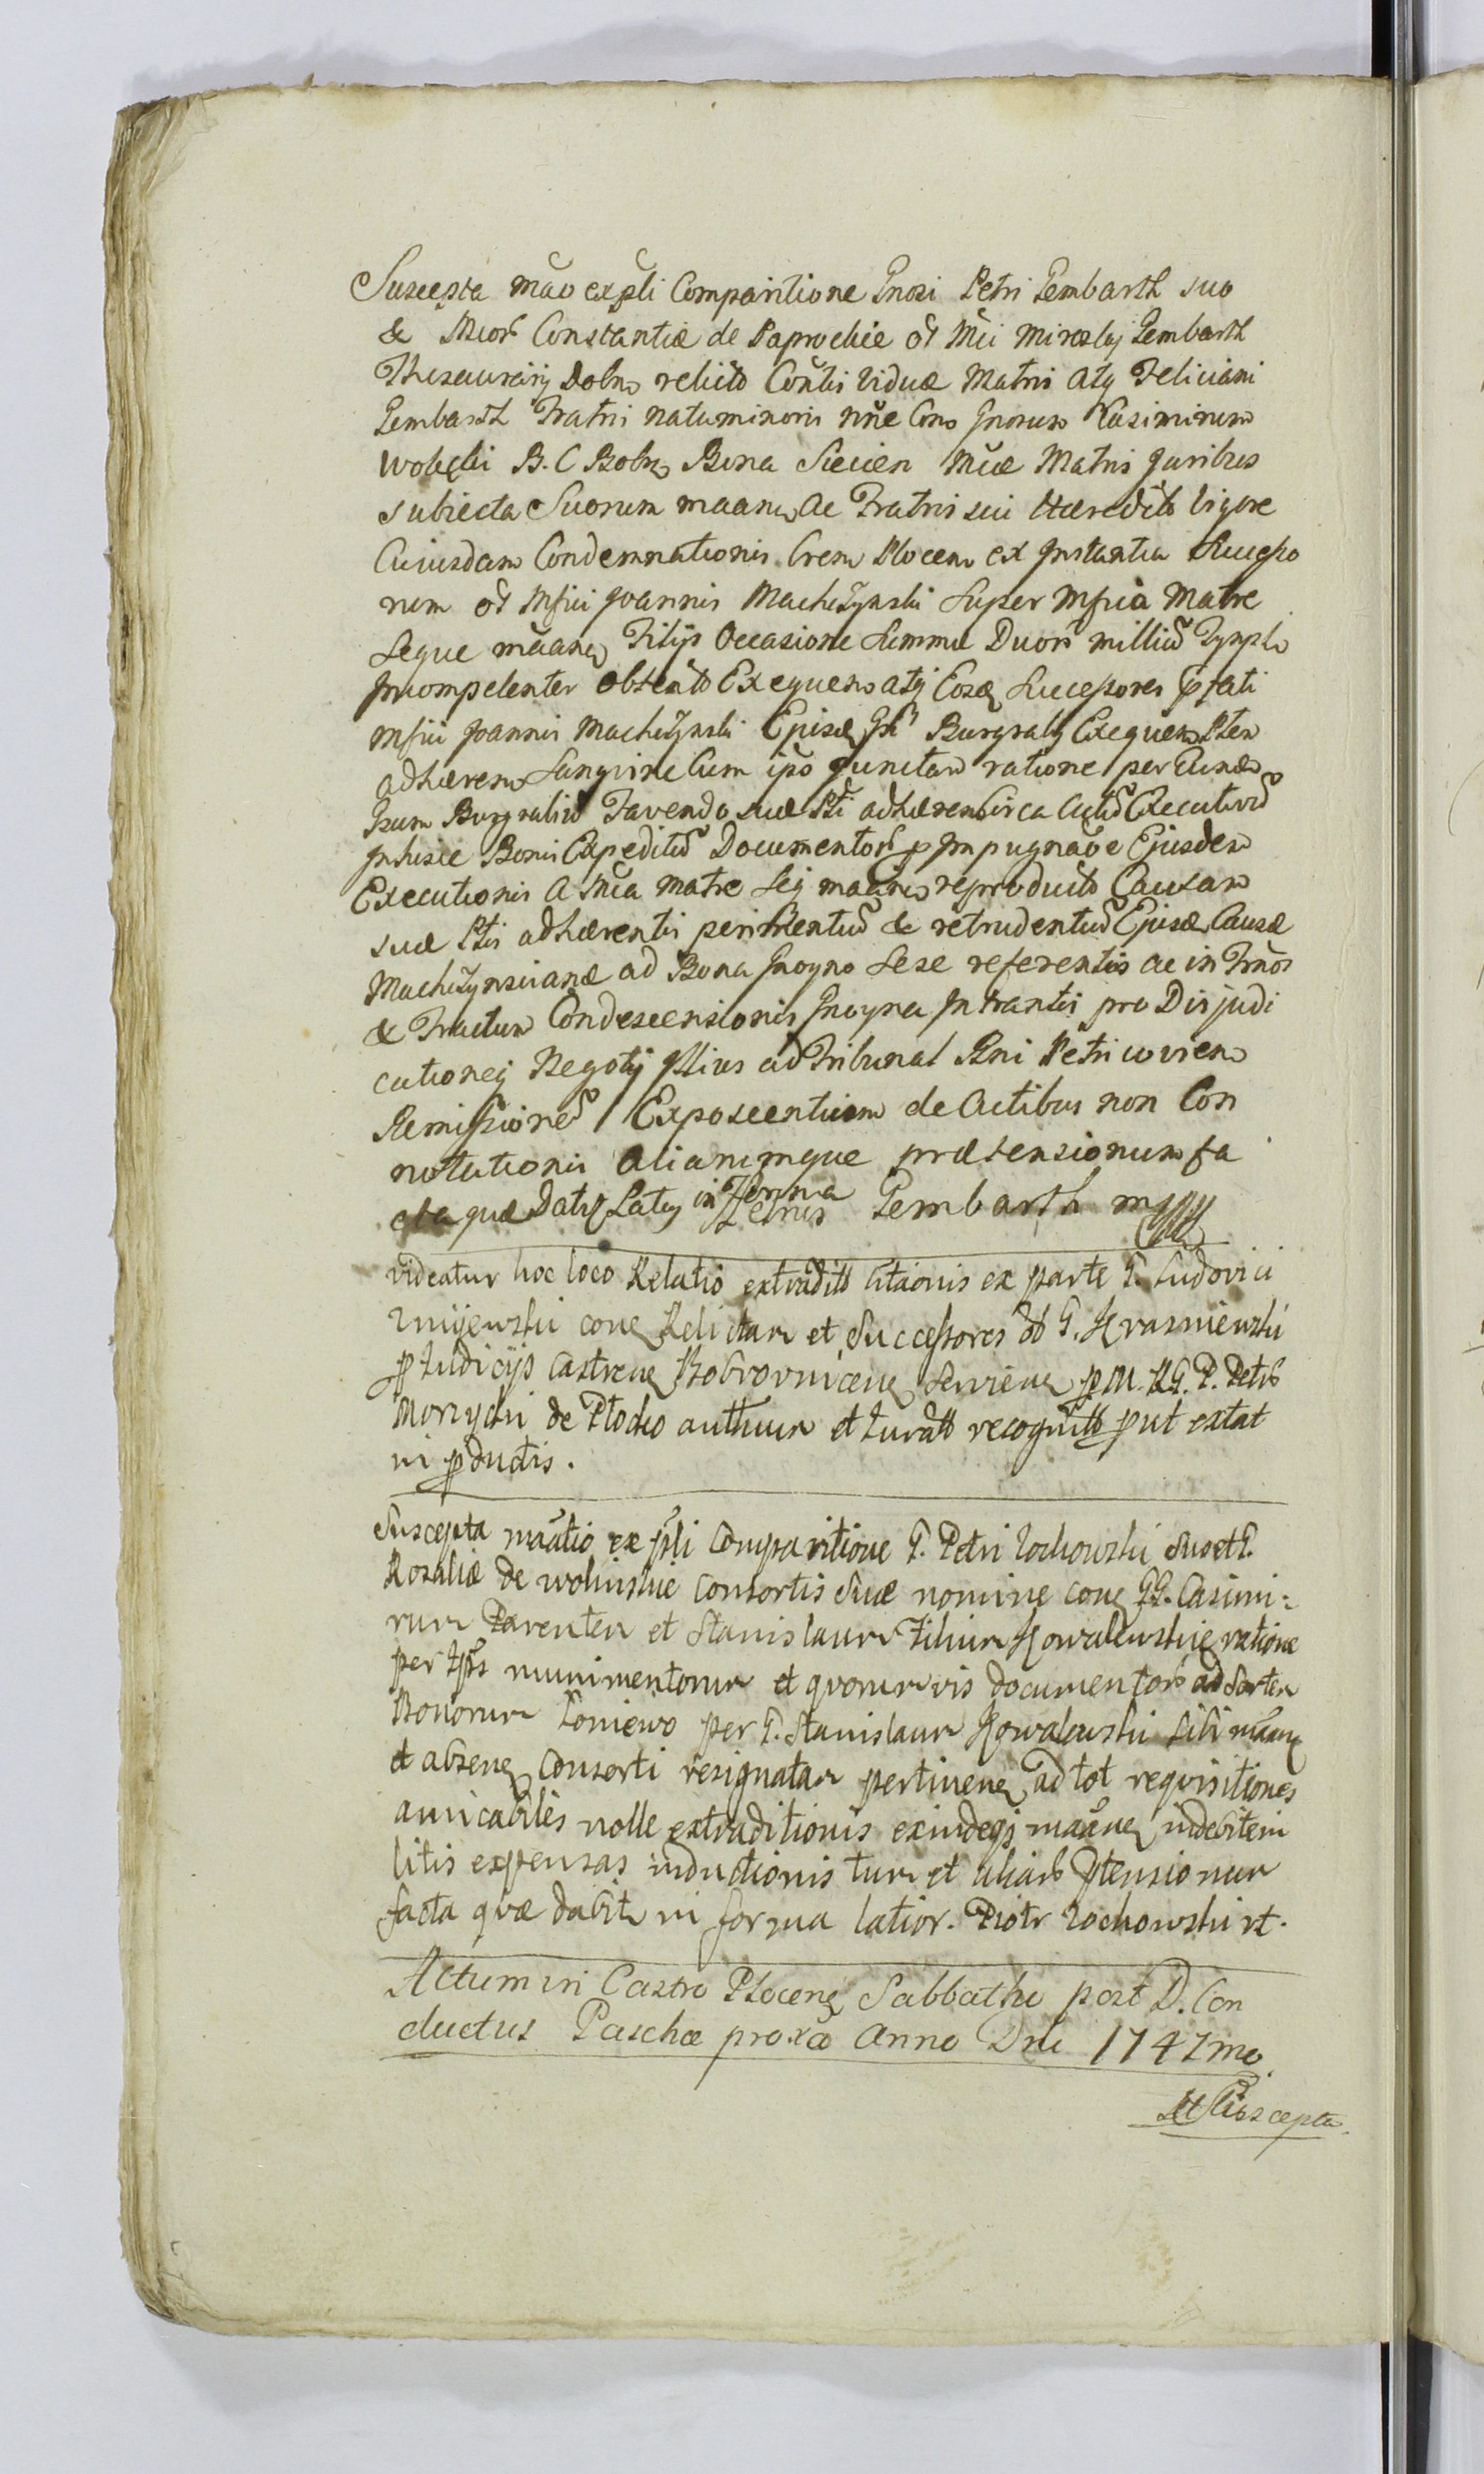 Suscepta mãõ expłi Comparitione Gnosi Petri Pembarth suo
& Mcor̃ Constantiæ de Paprockie ōt Mci Mirosłaj Pembarth
Thesaurarij Dobrn relicto Contis Viduæ Matris atq Feliciani
Pembarth Fratris natuminoris nñe Cons Gnosum Casimirum
Wolęcki B. C Bobr Bona Siecien Mcæ Matris Juribus
subiecta Suorum maann ac Fratris sui Hæredito Vigore
Cuiusdam Condemnationis Crem Plocens ex Instantia Succeſſo
rum ōt Mfici Joannis Machczynski Super Mficã Matre
Seque mãann Filijs Occasione Summæ Duor̃ milliũ Tynph
Incompetenter Obtento Exequens atq Eosq Succeſsores ꝑfati
Mfici Joannis Machczynski Episæ Gsũ Burgrabj Exequen Pten
adhærens Sanguine Cum ipõ Junctam ratione per Eunden
Gsum Burgrabiũ Favendo suæ Pti adhæren Circa Actũ Executivũ
Inhisce Bonis Expeditũ Documentor̃ ꝑ Impugnãõe Ejusdem
Executionis A Mca Matre Seq maann reproducto Causam
suæ Ptis adhærentis perimentiũ & retrudentiũ Episæ Causæ
Machczynscianæ ad Bona Gnoyno Sese referentis ac in Frños
& Tractum Condescensionis Gnoyna Intrantis pro Disjudi
cationeq Negotij Illius ad Tribunal Rni Petricoviens
Remiſsionẽ Exposcentium de Actibus non Con
notationis Aliarumque prætensionum fa
cta quæ Datj Latej in Forma
Petrus Pembarth mpp
videatur hoc loco Relatio extradito Citãonis ex parte G. Ludovici
Zmijewski cone Relictam et Succeſsores ōt G. Krasniewski
ꝑ Iudicijs Castrens Bobrovnicens Serviens ꝑ M. RG. P. Petrũ
Morzycki de Płocko authum et Iurato recognito put extat
in ꝑductis.
Suscepta maãtio ex ꝑłi Comparitione G. Petri Zochowski Suo et G.
Rosaliæ de wolinskie Consortis Suæ nomine cone GG. Casimi-
rum Parentem et Stanislaum Filium Kowalewskie ratione
per Ipõs munimentorum et quorumvis documentor̃ ad Sortem
Bonorum Łoniewo per G. Stanislaum Kowalewski sibi maann
et absens Consorti resignatam pertinens ad tot requisitiones
amicabiles nolle extraditionis exindeq maann indebitem
litis expensas inductionis tum et aliar̃ ꝑtensionum
facta quæ dabit in forma latior. Piotr Zochowski rt.
Actum in Castro Plocens Sabbatho post D. Con
ductus Paschæ proxõ Anno Dni 1747mo.
Suscepta